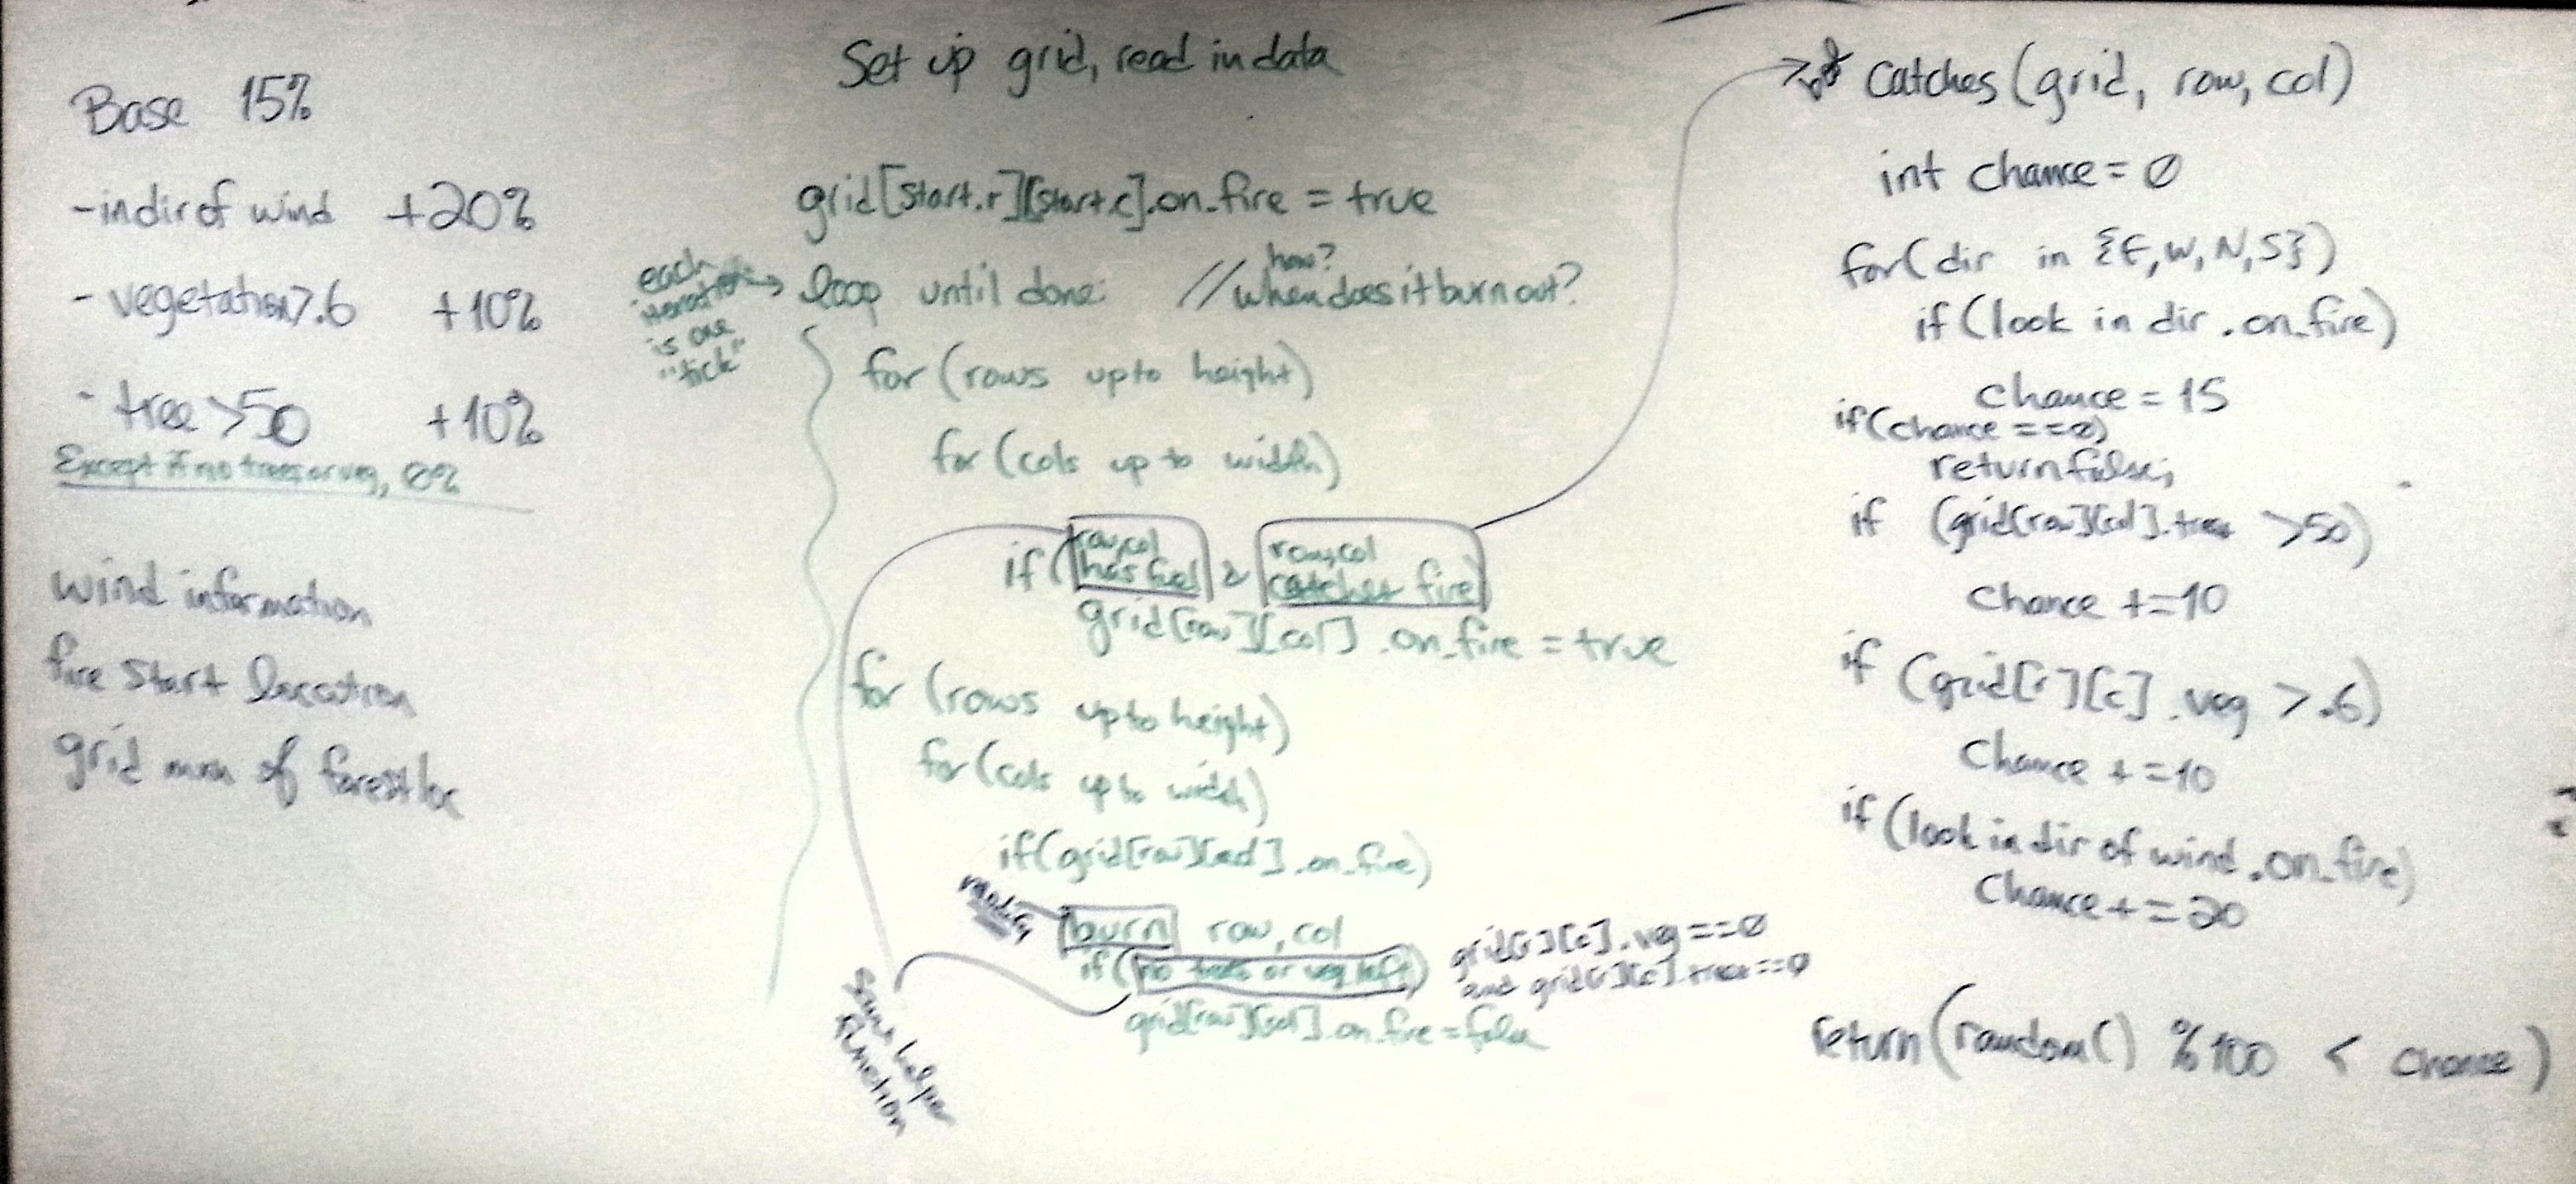 Base 15%
- in dir of wind +20%
- vegetation >.6 +10%
- tree >50 +10%
Except if no trees or veg, 0%
wind information
fire start location
grid of forest loc
Set up grid, read in data
grid[start.r][start.c].on_fire = true
each
iteration
is one
"tick"
loop until done: // when does it burn out?
how?
for (rows up to height)
for (cols up to width)
if (row,col has fuel & row,col catches fire)
grid[row][col].on_fire = true
for (rows up to height)
for (cols up to width)
if(grid[row][col].on_fire)
burn row, col
if (no trees or veg left)
grid[r][c].veg==0
and grid[r][c].trees==0
grid[row][col].on_fire = false
same helper
function
catches (grid, row, col)
int chance = 0
for(dir in {E,W,N,S})
if (look in dir .on_fire)
chance = 15
if(chance ==0)
return false;
if (grid[row][col].trees >50)
chance +=10
if (grid[r][c].veg >.6)
chance +=10
if (look in dir of wind .on_fire)
chance += 20
return (random() %100 < chance)